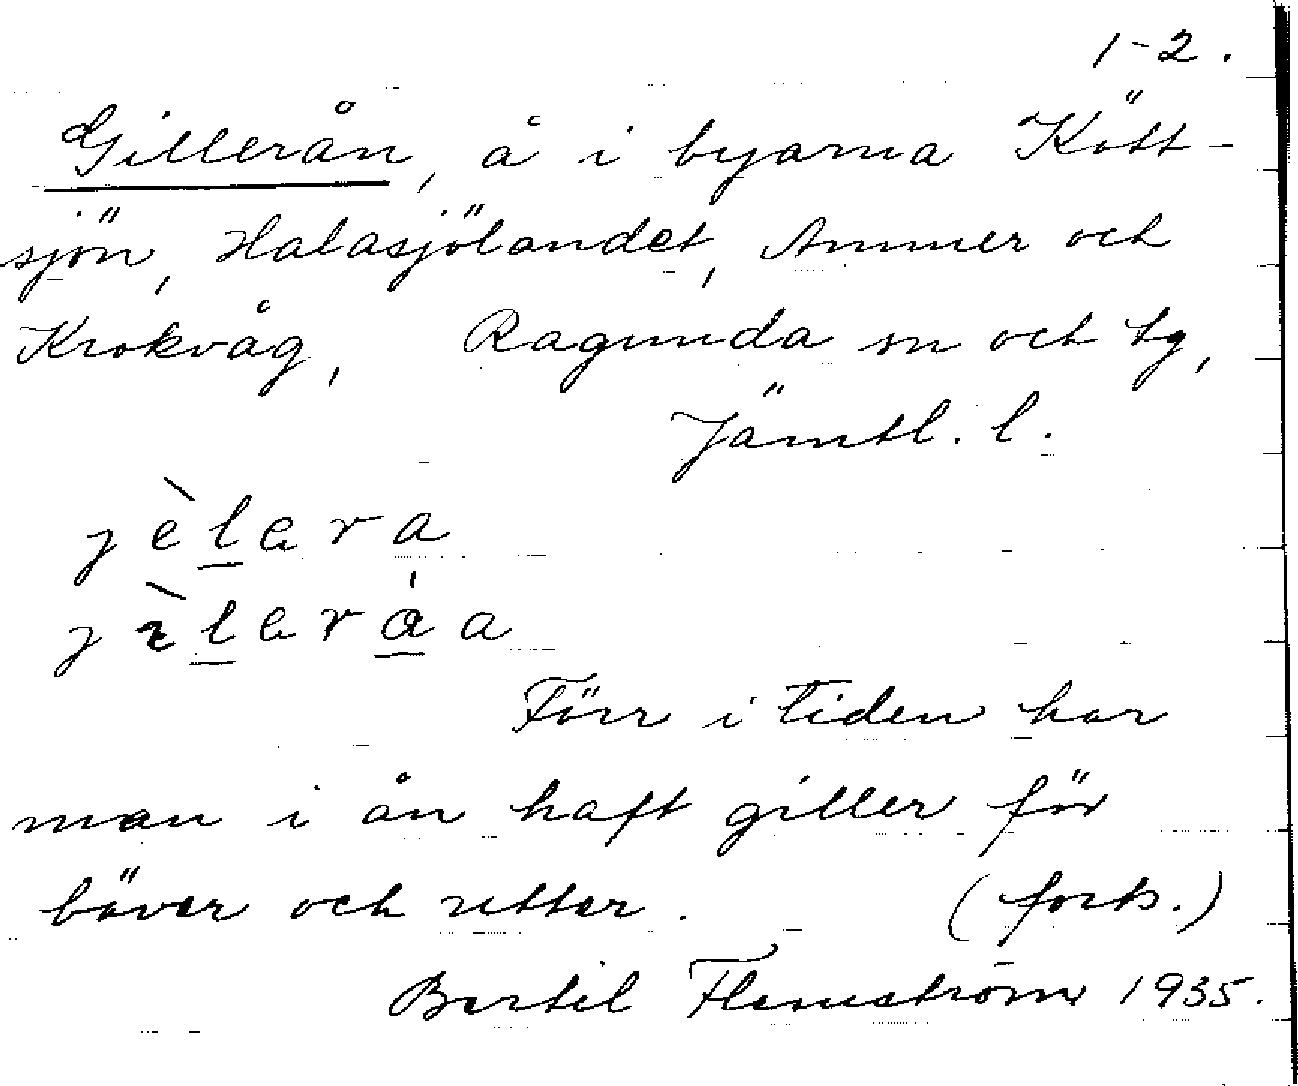 1-2.
Gillerån, å i byarna Kött-
sjön, Halasjölandet, Ammer och
Krokvåg, Ragunda sn och tg,
Jämtl. l.
Förr i tiden har
man i ån haft giller för
bäver och utter. (forts.)
Bertil Flemström 1935.